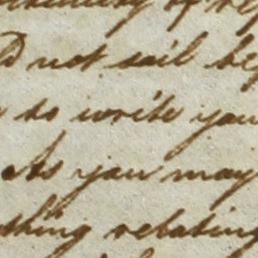 D not sail be
to write you
As you may
thing relating